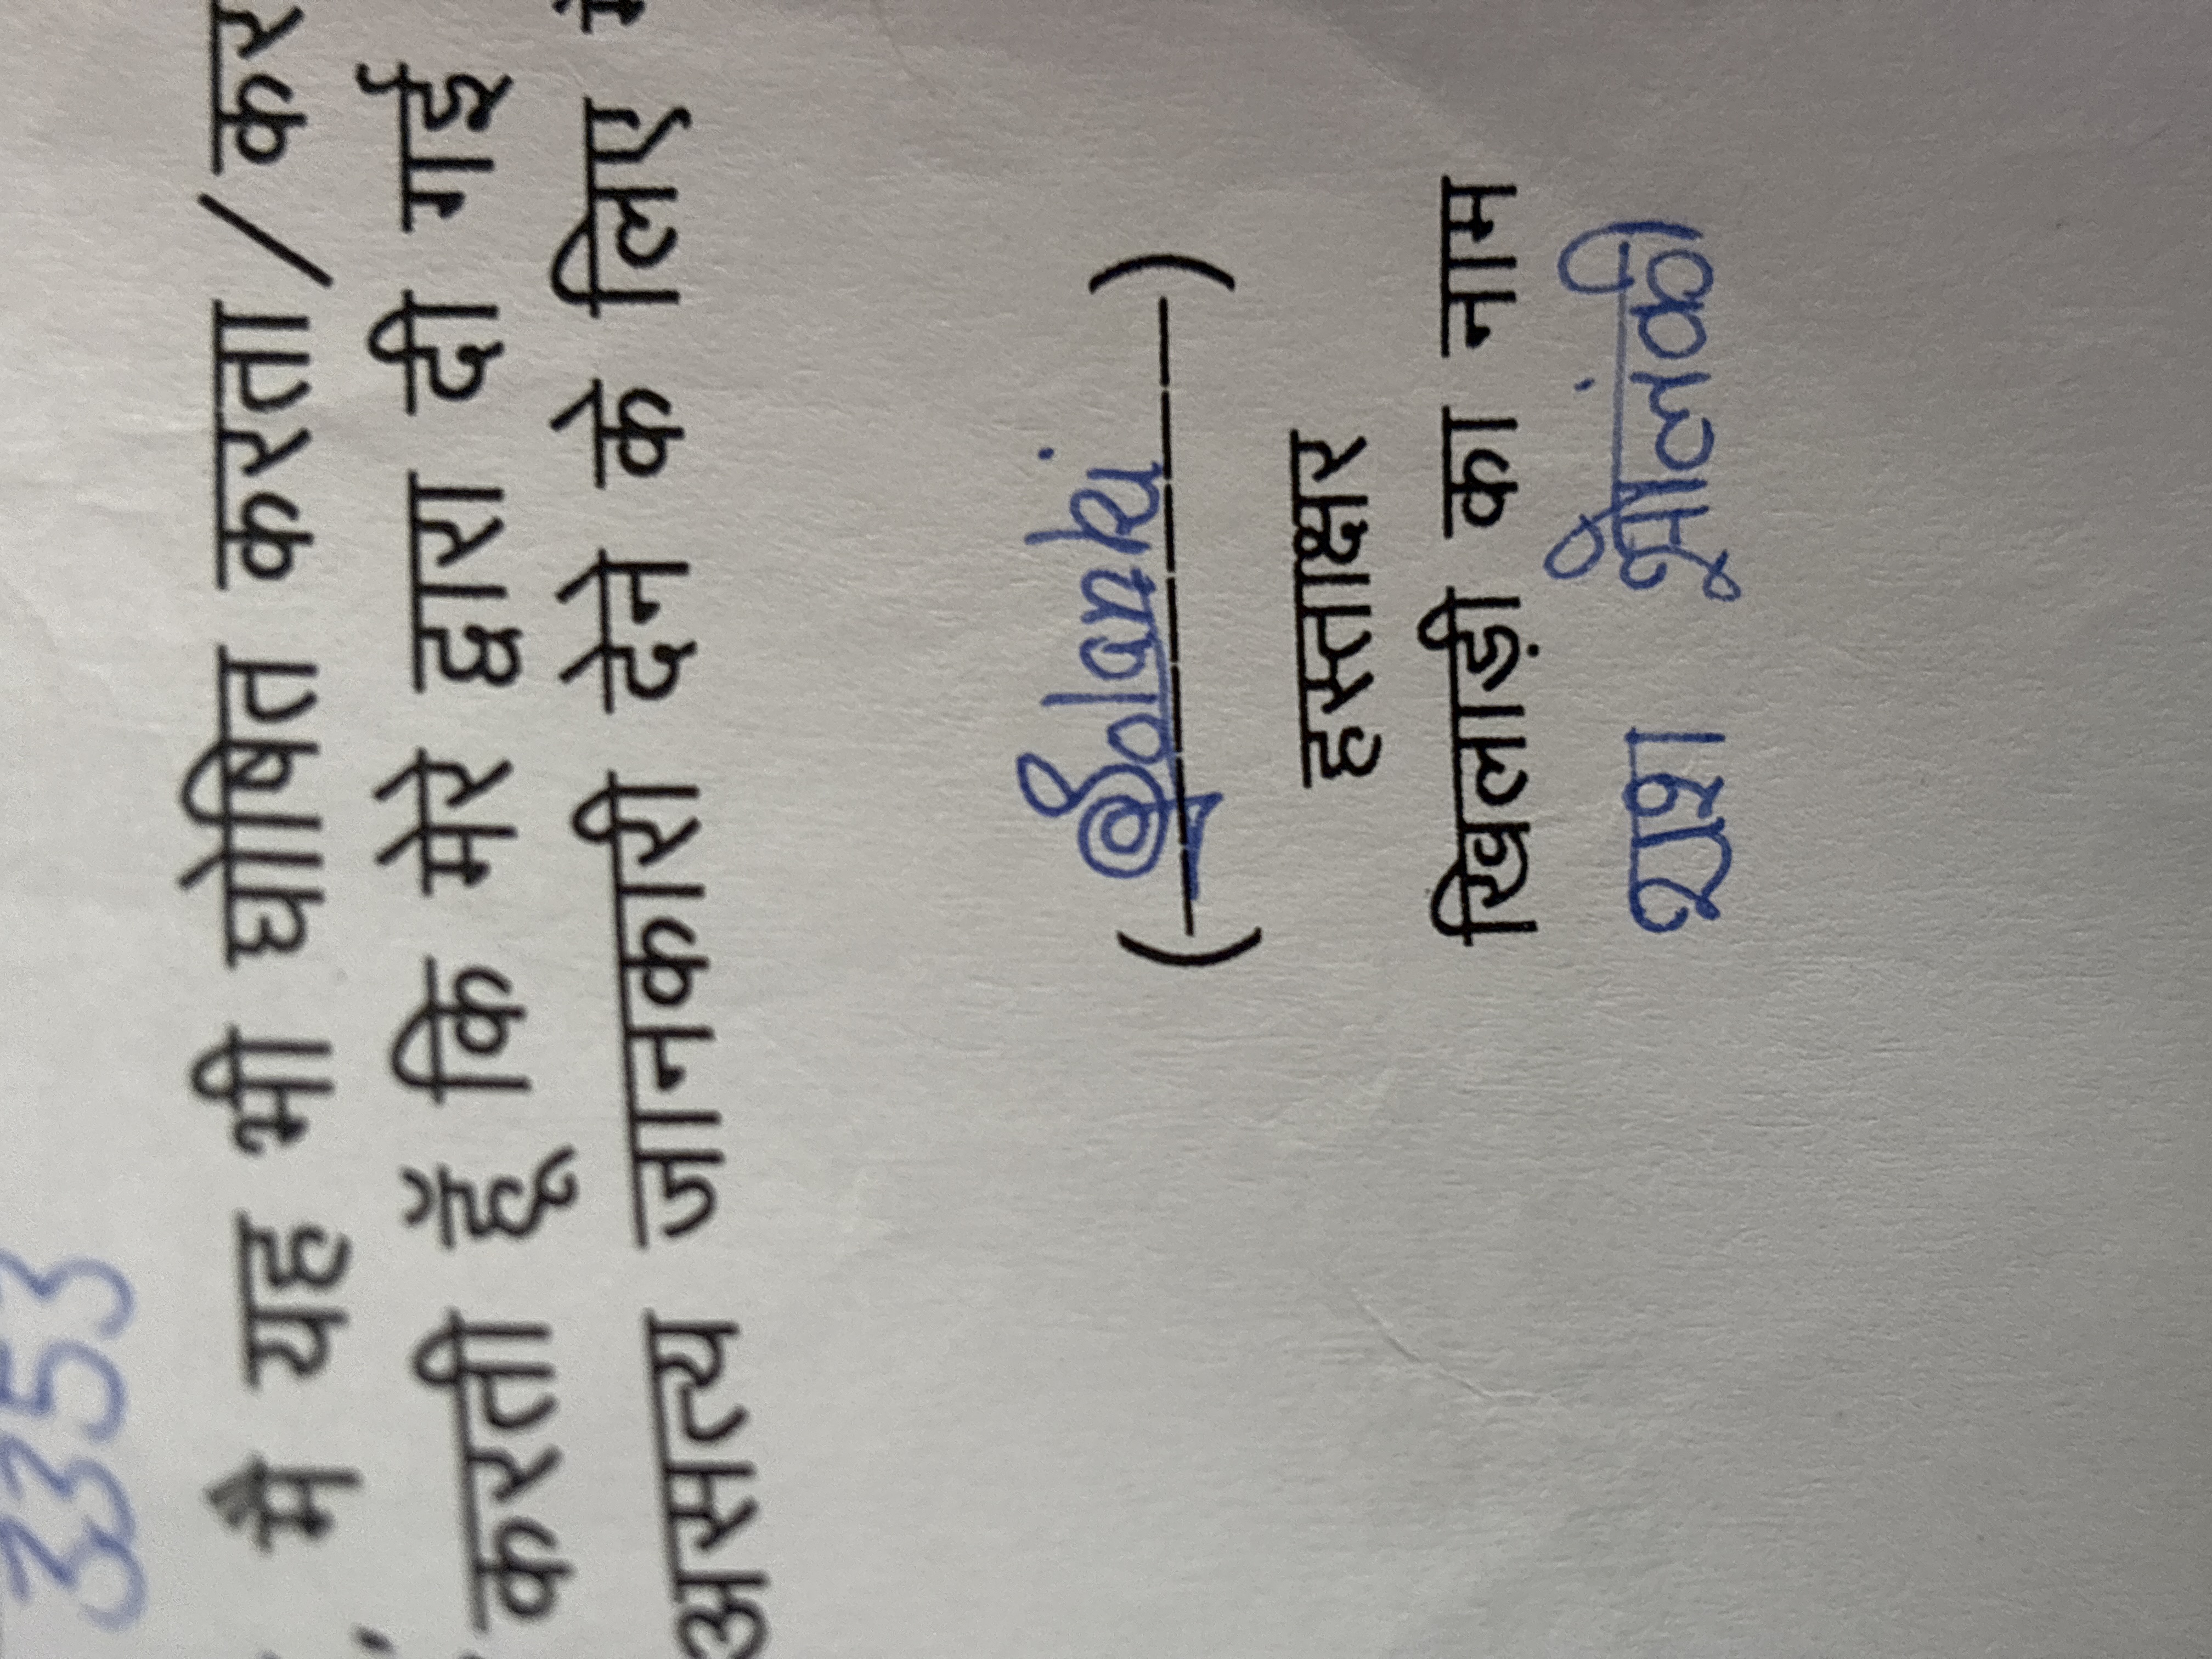 3353
मै यह भी घोषित करता / कर
करती हूँ कि मेरे द्वारा दी गई
असत्य जानकारी देने के लिए
( Solanki )
हस्ताक्षर
खिलाड़ी का नाम
सोलंकी